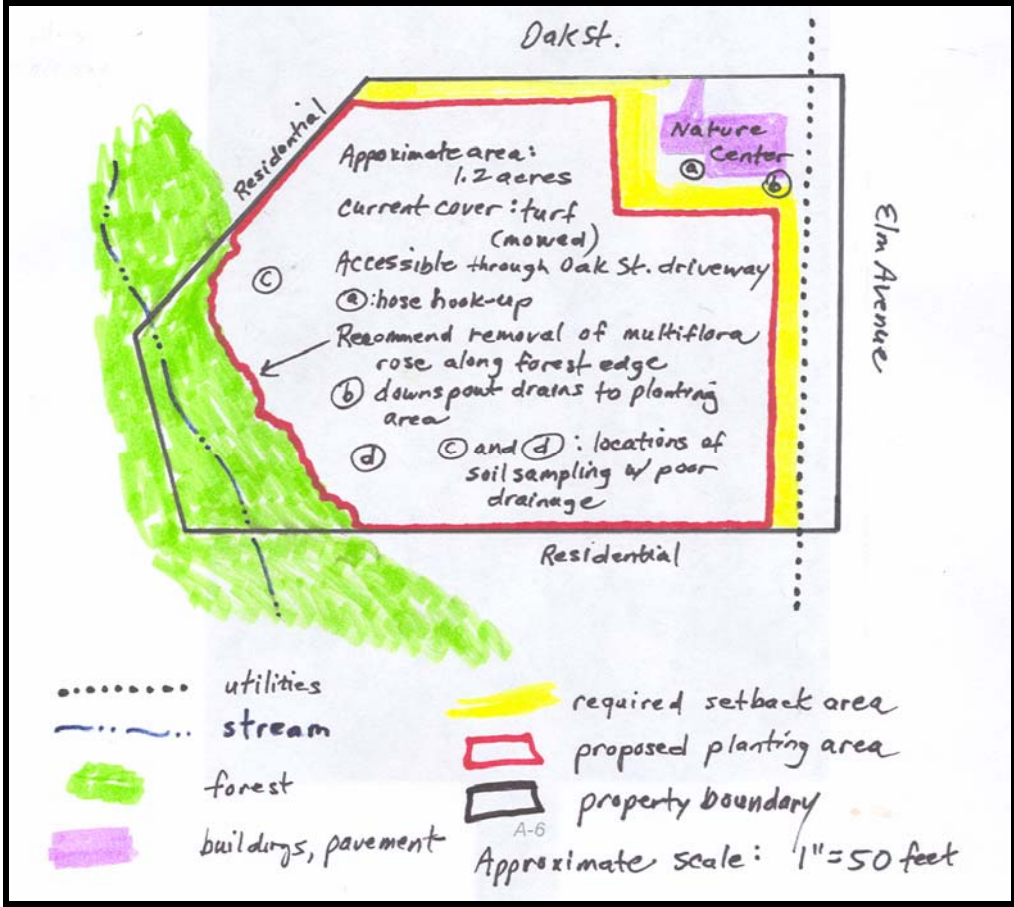 Oak St.
Residential
Nature
Center
a
b
Elm Avenue
Appoximate area:
1.2 acres
current cover: turf
(mowed)
Accessible through Oak St. driveway
c
a: hose hook-up
Recommend removal of multiflora
rose along forest edge
b downspout drains to planting
area
d
c and d: locations of
soil sampling w/ poor
drainage
Residential
utilities
stream
forest
buildings, pavement
required setback area
proposed planting area
property boundary
A-6
Approximate scale: 1"=50 feet